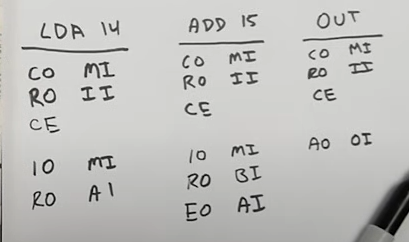 LDA 14
CO MI
RO II
CE
IO MI
RO AI
ADD 15
CO MI
RO II
CE
IO MI
RO BI
EO AI
OUT
CO MI
RO II
CE
AO OI